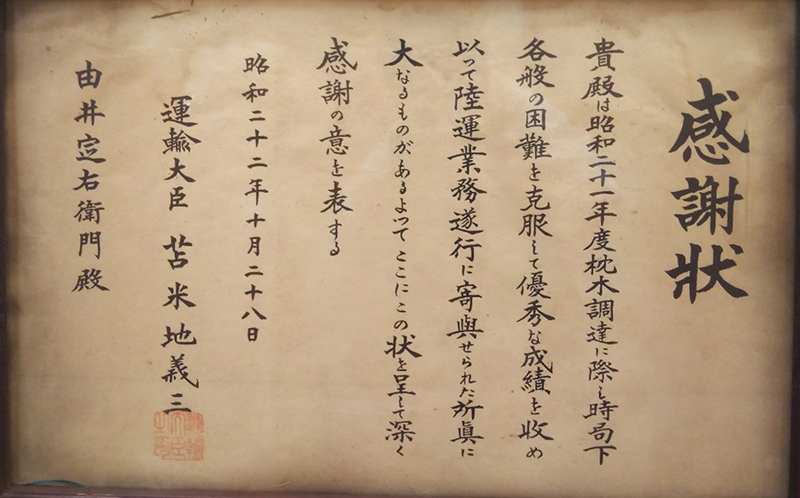 感謝状
貴殿は昭和二十一年度枕木調達に際し時局下
各般の困難を克服して優秀な成績を收め
以って陸運業務遂行に寄與せられた所眞に
大なるものがあるよつてここにこの状を呈して深く
感謝の意を表する
昭和二十二年十月二十八日
運輸大臣 苫米地義三
由井定右衛門殿